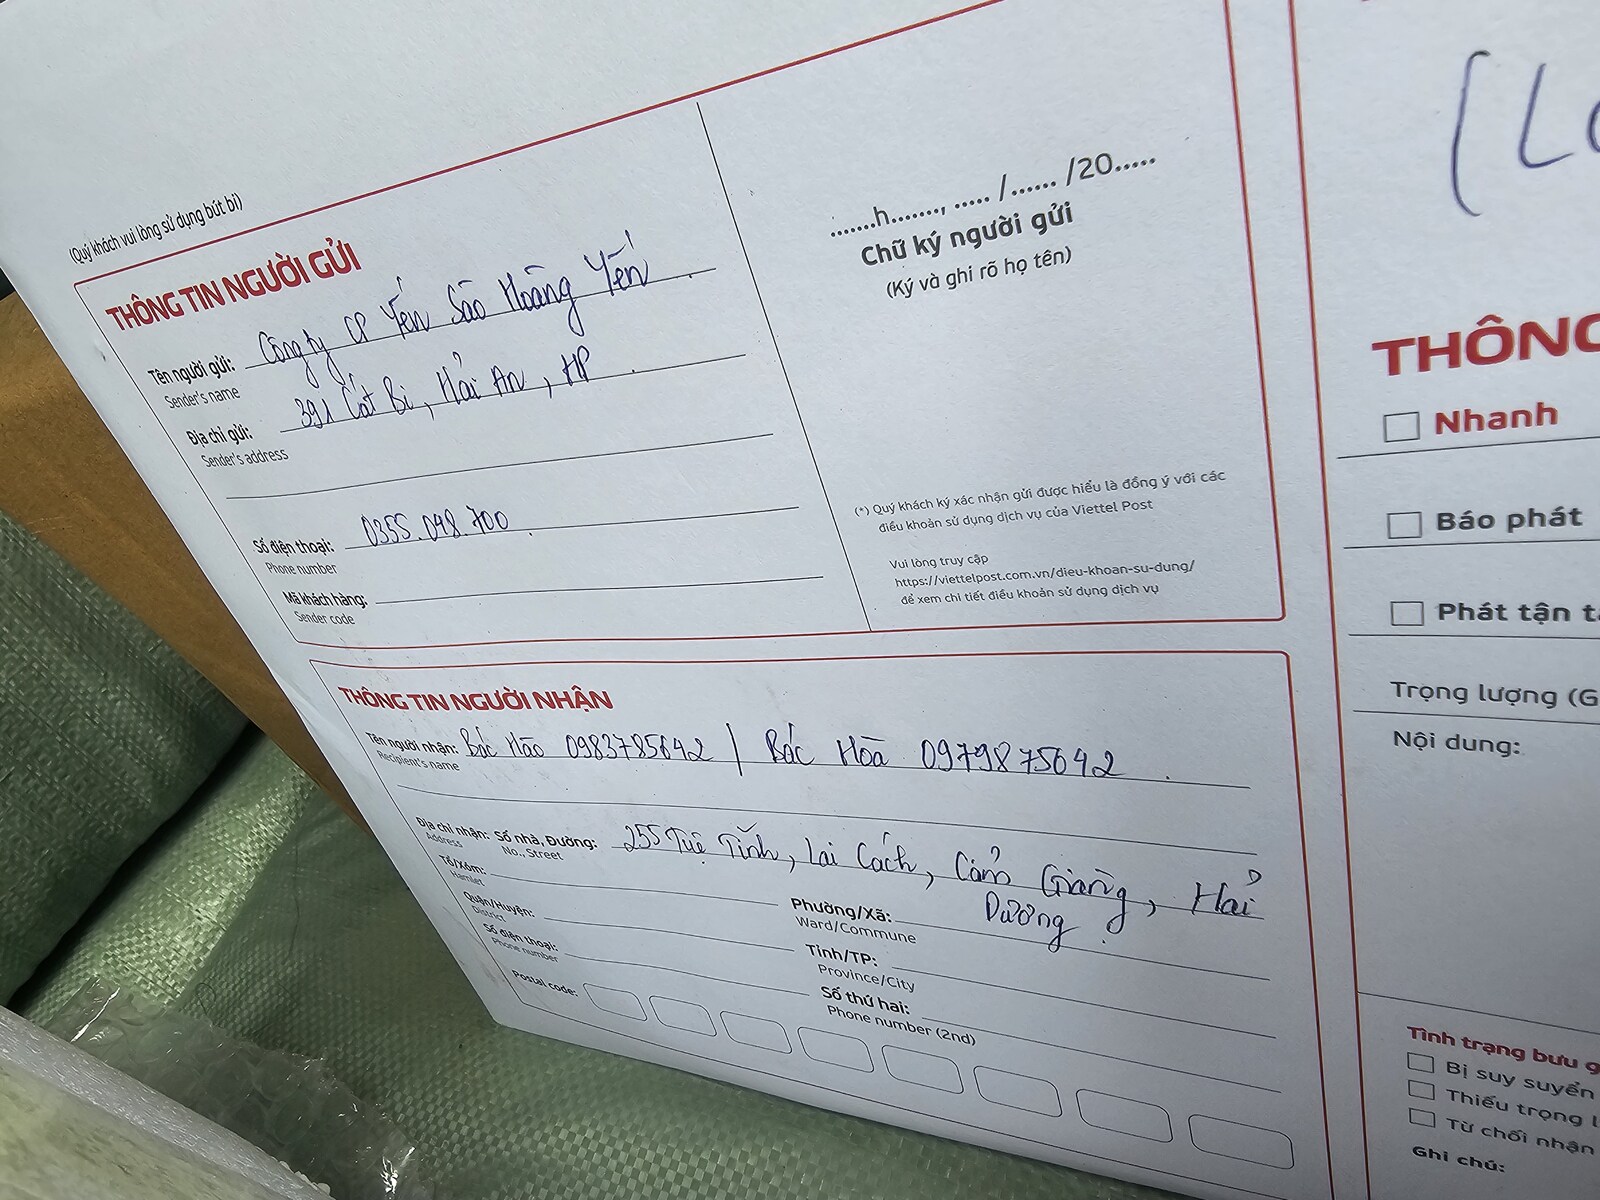 (Quý khách vui lòng sử dụng bút bi)
THÔNG TIN NGƯỜI GỬI
Tên người gửi: Công ty CP Yến Sào Hoàng Yến.
Sender's name
Địa chỉ gửi: 391 Cát Bi, Hải An, HP.
Sender's address
Số điện thoại: 0355.048.700.
Phone number
Mã khách hàng:
Sender code
.......h......., ..... /...... /20.....
Chữ ký người gửi
(Ký và ghi rõ họ tên)
(*) Quý khách ký xác nhận gửi được hiểu là đồng ý với các
điều khoản sử dụng dịch vụ của Viettel Post
Vui lòng truy cập
https://viettelpost.com.vn/dieu-khoan-su-dung/
để xem chi tiết điều khoản sử dụng dịch vụ
THÔNG TIN NGƯỜI NHẬN
Tên người nhận: Bác Hào 0983785642 | Bác Hoà 0979875642.
Recipient's name
Địa chỉ nhận: Số nhà, Đường: 255 Tuệ Tĩnh, Lai Cách, Cẩm Giàng, Hải
Address No., Street
Dương.
Tổ/Xóm:
Hamlet
Phường/Xã:
Ward/Commune
Quận/Huyện:
District
Tỉnh/TP:
Province/City
Số điện thoại:
Phone number
Số thứ hai:
Phone number (2nd)
Postal code:
THÔNG
Nhanh
Báo phát
Phát tận
Trọng lượng (G
Nội dung:
Tình trạng bưu
Bị suy suyển
Thiếu trọng
Từ chối nhận
Ghi chú: